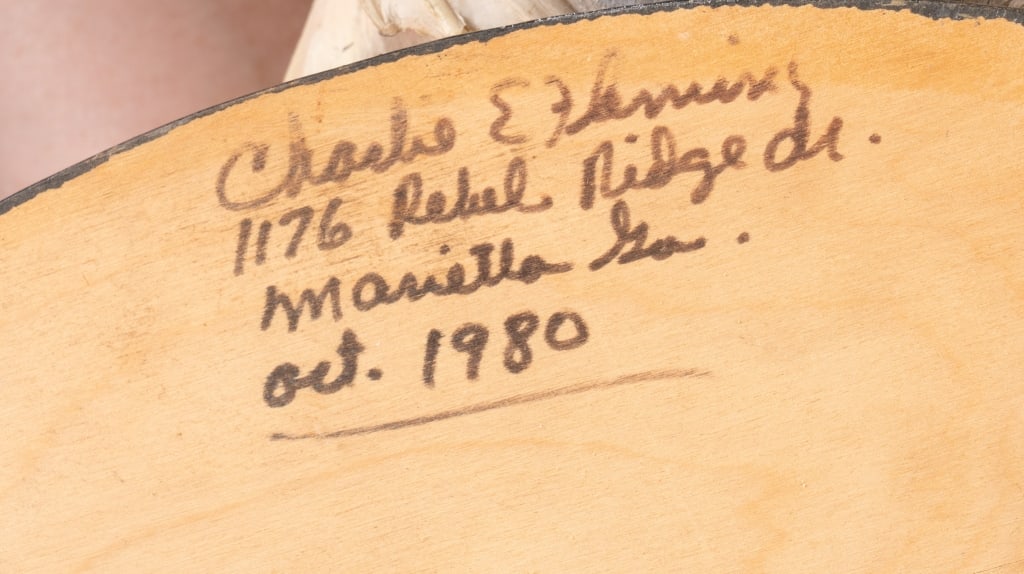 Charlie E Fleming
1176 Rebel Ridge dr.
Marietta Ga.
oct. 1980